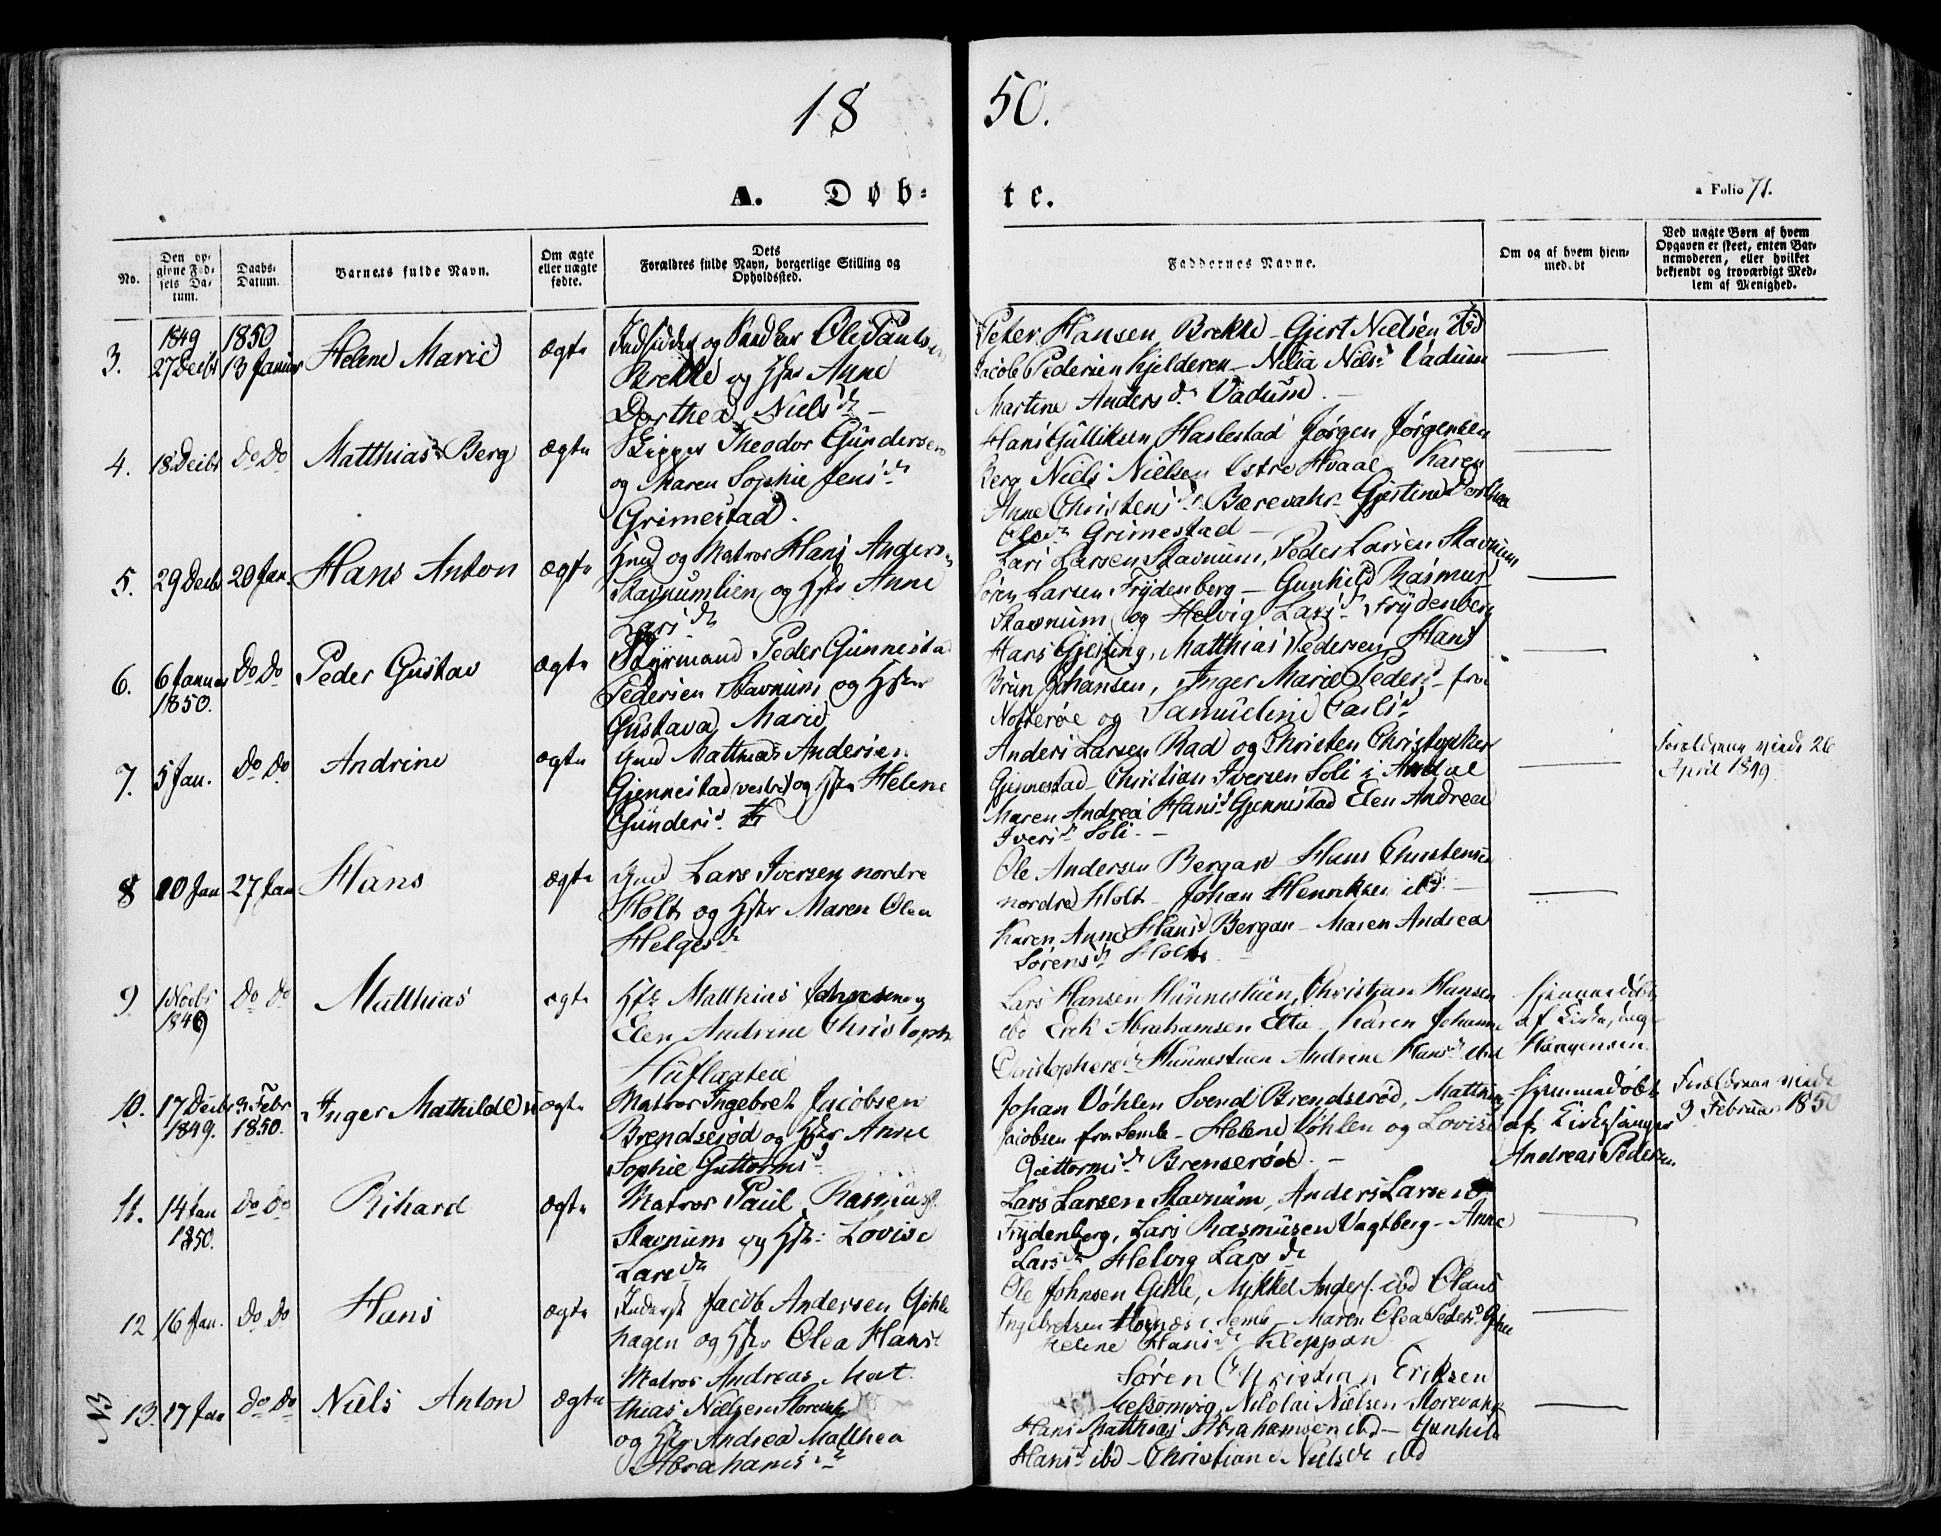 1850.
A. Døbte.
a Folio 71.
No.
Den opgivne Fødsels Datum.
Daabs-Datum.
Barnets fulde Navn.
Om ægte eller uægte fødte.
Dets Forældres fulde Navn, borgerlige Stilling og Opholdssted.
Faddernes Navne.
Om og af hvem hjemmedøbt
Ved uægte Børn af hvem Opgaven er skeet, enten Barnemoderen, eller hvilket bekjendt og troværdigt Medlem af Menighed.
3. 1849 27 Decbr 1850 13 Januar Helene Marie ægte
Indsidder og Ole Paulsen
Brekke og Hstr Anne
Dorthea Nielsdr
Peter Hansen Brekke - Gjert Nielsen ibd
Jacob Pedersen Kjelderen - Nilia Nielsd Vadum
Martine Andersdr Vadum
4. 18 Decbr Do Do Matthias Berg ægte
Skipper Theodor Gundersen
og Maren Sophie Jensdr
Grimestad.
Hans Gulliksen Haslestad Jørgen Jørgensen
Berg Niels Nielsen Østre Hvaal Karen
Anne Christensdr Bærevahr Gjestine Dorthea
Olsdr Grimestad
5. 29 Decbr 20 Jan. Hans Anton ægte
Gmd og Matros Hans Anders
Stavnumlien og Hstr Anne
Larsdr
Lars Larsen Stavnum, Peder Larsen Stavnum
Søren Larsen Frydenberg - Gunhild Rasmusd
Stavnum og Helvig Larsdr Frydenberg
6. 6 Januar 1850. Do Do Peder Gustav ægte
Styrmand Peder Gunnestad
Pedersen Stavnum og Hstr
Gustava Marie
Hans Gjesling, Matthias Pedersen, Hans
Brun Johansen, Inger Marie Pedersd fra
Nøtterøe og Samueline Carlsd
7. 5 Jan. Do Do Andrine ægte
Gmd Matthias Andersen
Gjennestad (vestre) og Hstr Helene
Gundersd.
Anders Larsen Rad og Christen Christopher
Gjennestad - Christian Iversen Soli i Andal
Maren Andrea Hansd Gjennestad Elen Andrea
Iversdr Soli.
Forældrene viede 26
April 1849
8 10 Jan 27 Jan Hans ægte
Gmd Lars Iversen nordre
Holt og Hstr Maren Olea
Helgesdr
Ole Andersen Bergan Hans Christensen
nordre Holt - Johan Henriksen ibd
Karen Anne Hansd Bergan - Maren Andrea
Sørensdr Holt
9 1 Novbr 1849 Do Do Matthias ægte
Hfd Matthias Johnsen og
Elen Andrine Christophdr
Huflaatten
Lars Hansen Hunnestuen, Christian Hansen
ibd Erik Abrahamsen Elta Karen Johanne
Christophersdr Hunnestuen Andrine Hansdr ibd
Hjemmedøbt
af
Haagensen
10. 17 Decbr 1849. 3 Febr 1850. Inger Mathilde ægte
Matros Ingebret Jacobsen
Brendserød og Hstr Anne
Sophie Guttormsd
Johan Vøhlen Svend Brendserød, Matthias
Jacobsen fra Semb - Helene Vøhlen og Lovise
Guttormsdr Brenserød. -
Hjemmedøbt
af Kirkesanger
Andreas Pedersen
Forældrene viede
9 Februar 1850
11. 14 Jan 1850. Do Do Rihard ægte
Matros Paul Rasmus.
Stavnum og Hstr: Lovise
Larsdr
Lars Larsen Stavnum, Anders Larsen
Frydenberg, Lars Rasmusen Vagtberg - Anne
Larsdr Helvig Larsdr
12 16 Jan. Do Do Hans ægte
Inderst Jacob Andersen Gihle
hagen og Hstr Olea Hans
Ole Johnsen Gihle, Mikkel Anders. ibd Olaus
Ingebretsen Hornæs i Semb - Maren Olea Pedersd Gihle
Helene Hansdr Kleppan
NB 13. 17 Jan Do Do Niels Anton ægte
Matros Andreas Mat
thias Nielsen Storevahr
og Hstr Andrea Matthea
Abrahamsdr
Søren Christian Eriksen
Melsomvig, Nikolai Nielsen Storevahr
Hans Matthias Abrahamsen ibd - Gunhild
Hansd ibd - Christiane Nielsdr ibd